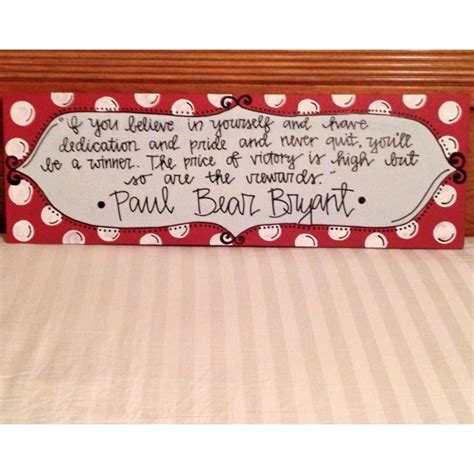 "if you believe in yourself and have
dedication and pride and never quit, you'll
be a winner. The price of victory is high but
so are the rewards."
• Paul Bear Bryant •